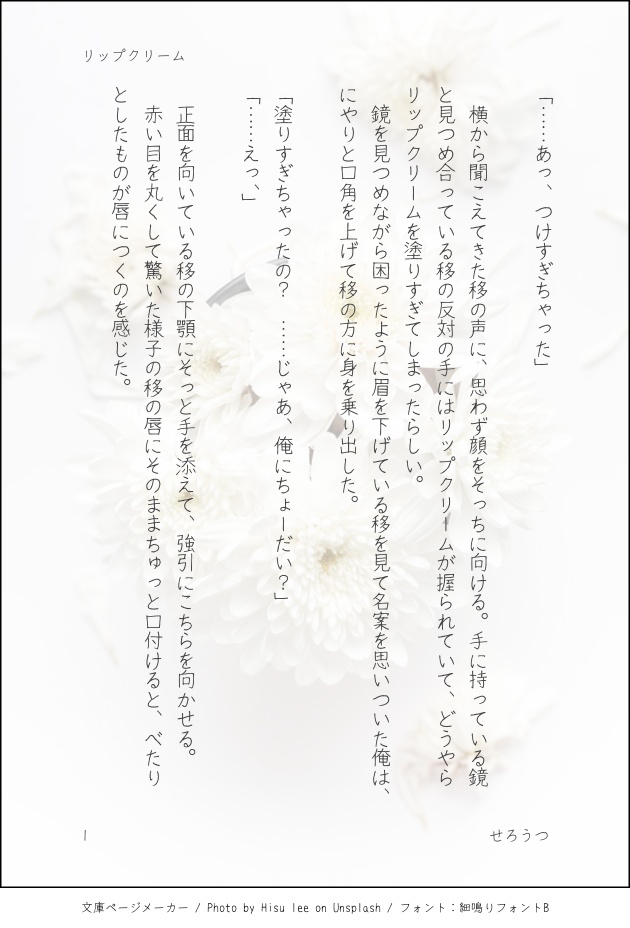 リップクリーム
「……あっ、つけすぎちゃった」
横から聞こえてきた移の声に、思わず顔をそっちに向ける。手に持っている鏡
と見つめ合っている移の反対の手にはリップクリームが握られていて、どうやら
リップクリームを塗りすぎてしまったらしい。
鏡を見つめながら困ったように眉を下げている移を見て名案を思いついた俺は、
にやりと口角を上げて移の方に身を乗り出した。
「塗りすぎちゃったの？　……じゃあ、俺にちょーだい？」
「……えっ、」
正面を向いている移の下顎にそっと手を添えて、強引にこちらを向かせる。
赤い目を丸くして驚いた様子の移の唇にそのままちゅっと口付けると、べたり
としたものが唇につくのを感じた。
1
せろうつ
文庫ページメーカー / Photo by Hisu lee on Unsplash / フォント：細鳴りフォントB